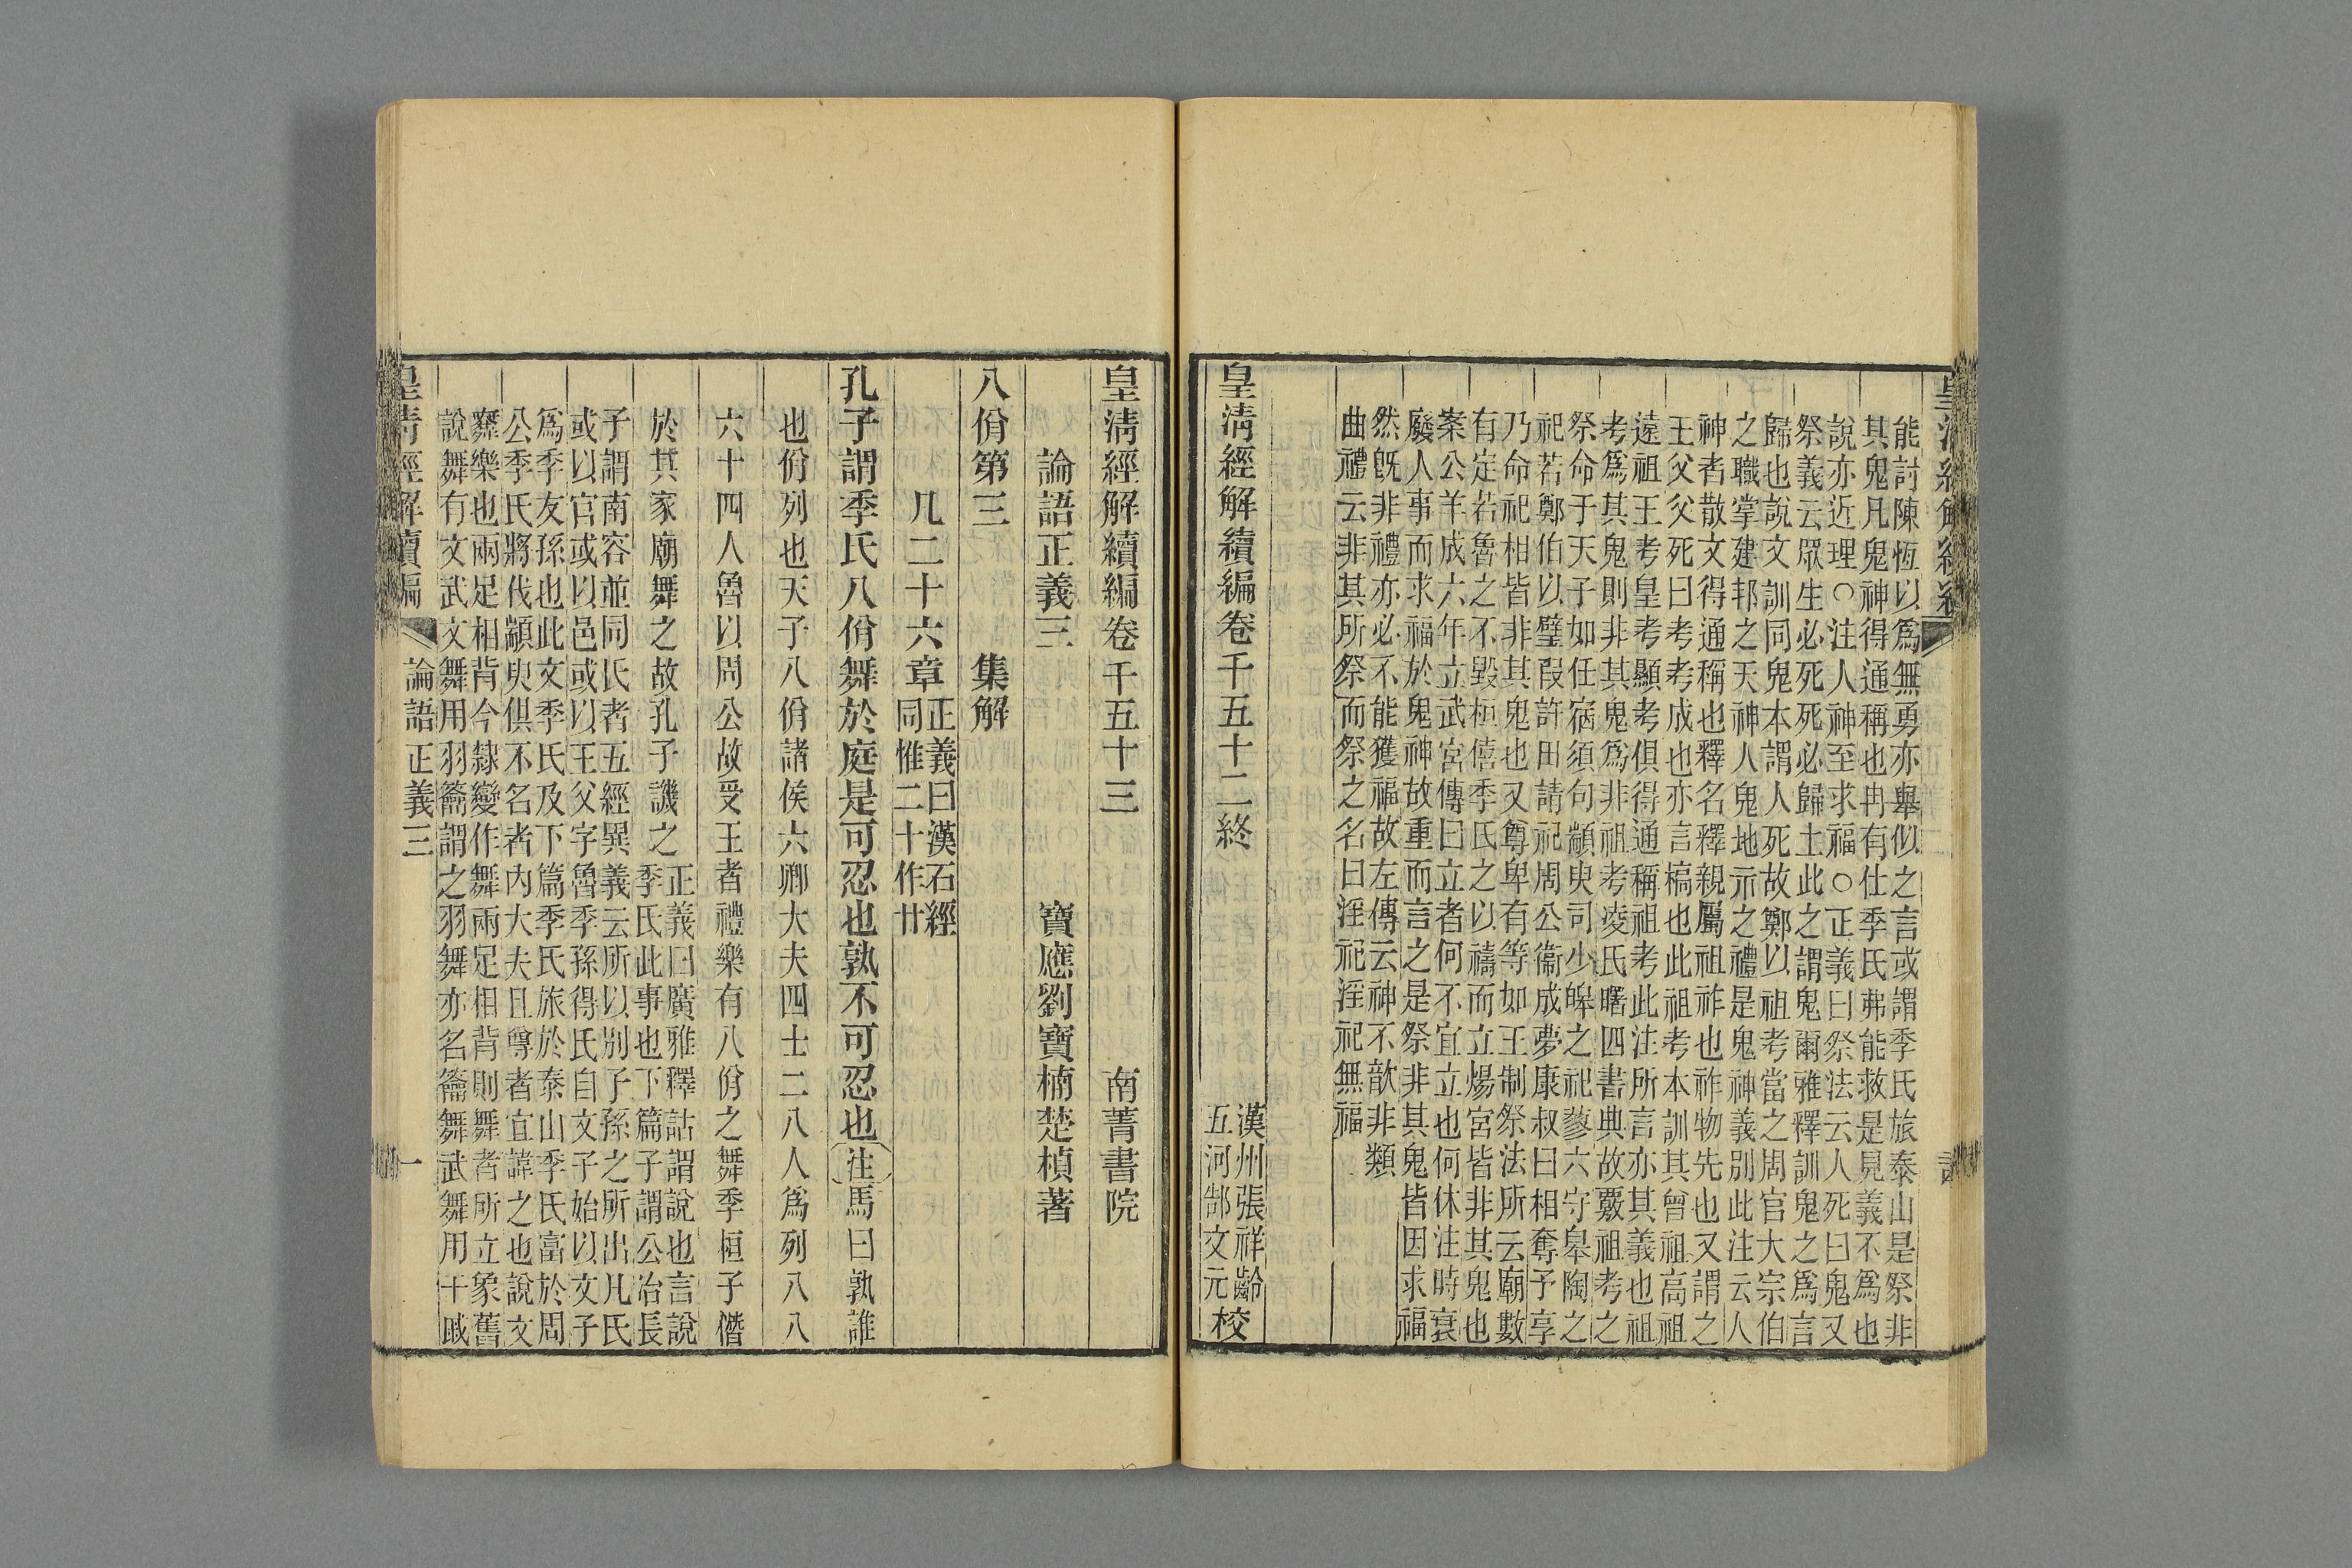 能討陳恆以爲無勇亦舉似之言或謂季氏旅泰山是祭非
其鬼凡鬼神得通稱也冉有仕季氏弗能救是見義不爲也
說亦近理○注人神至求福○正義曰祭法云人死曰鬼又
祭義云眾生必死死必歸土此之謂鬼爾雅釋訓鬼之爲言
歸也說文訓同鬼本謂人死故鄭以祖考當之周官大宗伯
之職掌建邦之天神人鬼地示之禮是鬼神義別此注云人
神者散文得通稱也釋名釋親屬祖祚也祚物先也又謂之
王父父死曰考考成也亦言槁也此祖考本訓其曾祖高祖
遠祖王考皇考顯考俱得通稱祖考此注所言亦其義也祖
考爲其鬼則非其鬼爲非祖考凌氏曙四書典故覈祖考之
祭命于天子如任宿須句顓臾司少皞之祀蓼六守皋陶之
祀若鄭伯以璧假許田請祀周公衞成夢康叔曰相奪予享
乃命祀相皆非其鬼也又尊卑有等如王制祭法所云廟數
有定若魯之不毀桓僖季氏之以禱而立煬宮皆非其鬼也
案公羊成六年立武宮傳曰立者何不宜立也何休注時衰
廢人事而求福於鬼神故重而言之是祭非其鬼皆因求福
然旣非禮亦必不能獲福故左傳云神不歆非類
曲禮云非其所祭而祭之名曰淫祀淫祀無福
皇淸經解續編卷千五十二終
漢州張祥齡
五河郜文元校
皇淸經解續編卷千五十三
南菁書院
論語正義三
寶應劉寶楠楚楨著
八佾第三
集解
凡二十六章
正義曰漢石經
同惟二十作廿
孔子謂季氏八佾舞於庭是可忍也孰不可忍也注馬曰孰誰
也佾列也天子八佾諸侯六卿大夫四士二八人爲列八八
六十四人魯以周公故受王者禮樂有八佾之舞季桓子僭
於其家廟舞之故孔子譏之
正義曰廣雅釋詁謂說也言說
季氏此事也下篇子謂公冶長
子謂南容並同氏者五經異義云所以別子孫之所出凡氏
或以官或以邑或以王父字魯季孫得氏自文子始以文子
爲季友孫也此文季氏及下篇季氏旅於泰山季氏富於周
公季氏將伐顓臾俱不名者內大夫且尊者宜諱之也說文
舞樂也兩足相背今隸變作舞兩足相背則舞者所立象舊
說舞有文武文舞用羽籥謂之羽舞亦名籥舞武舞用干戚
皇淸經解續編
論語正義三
一